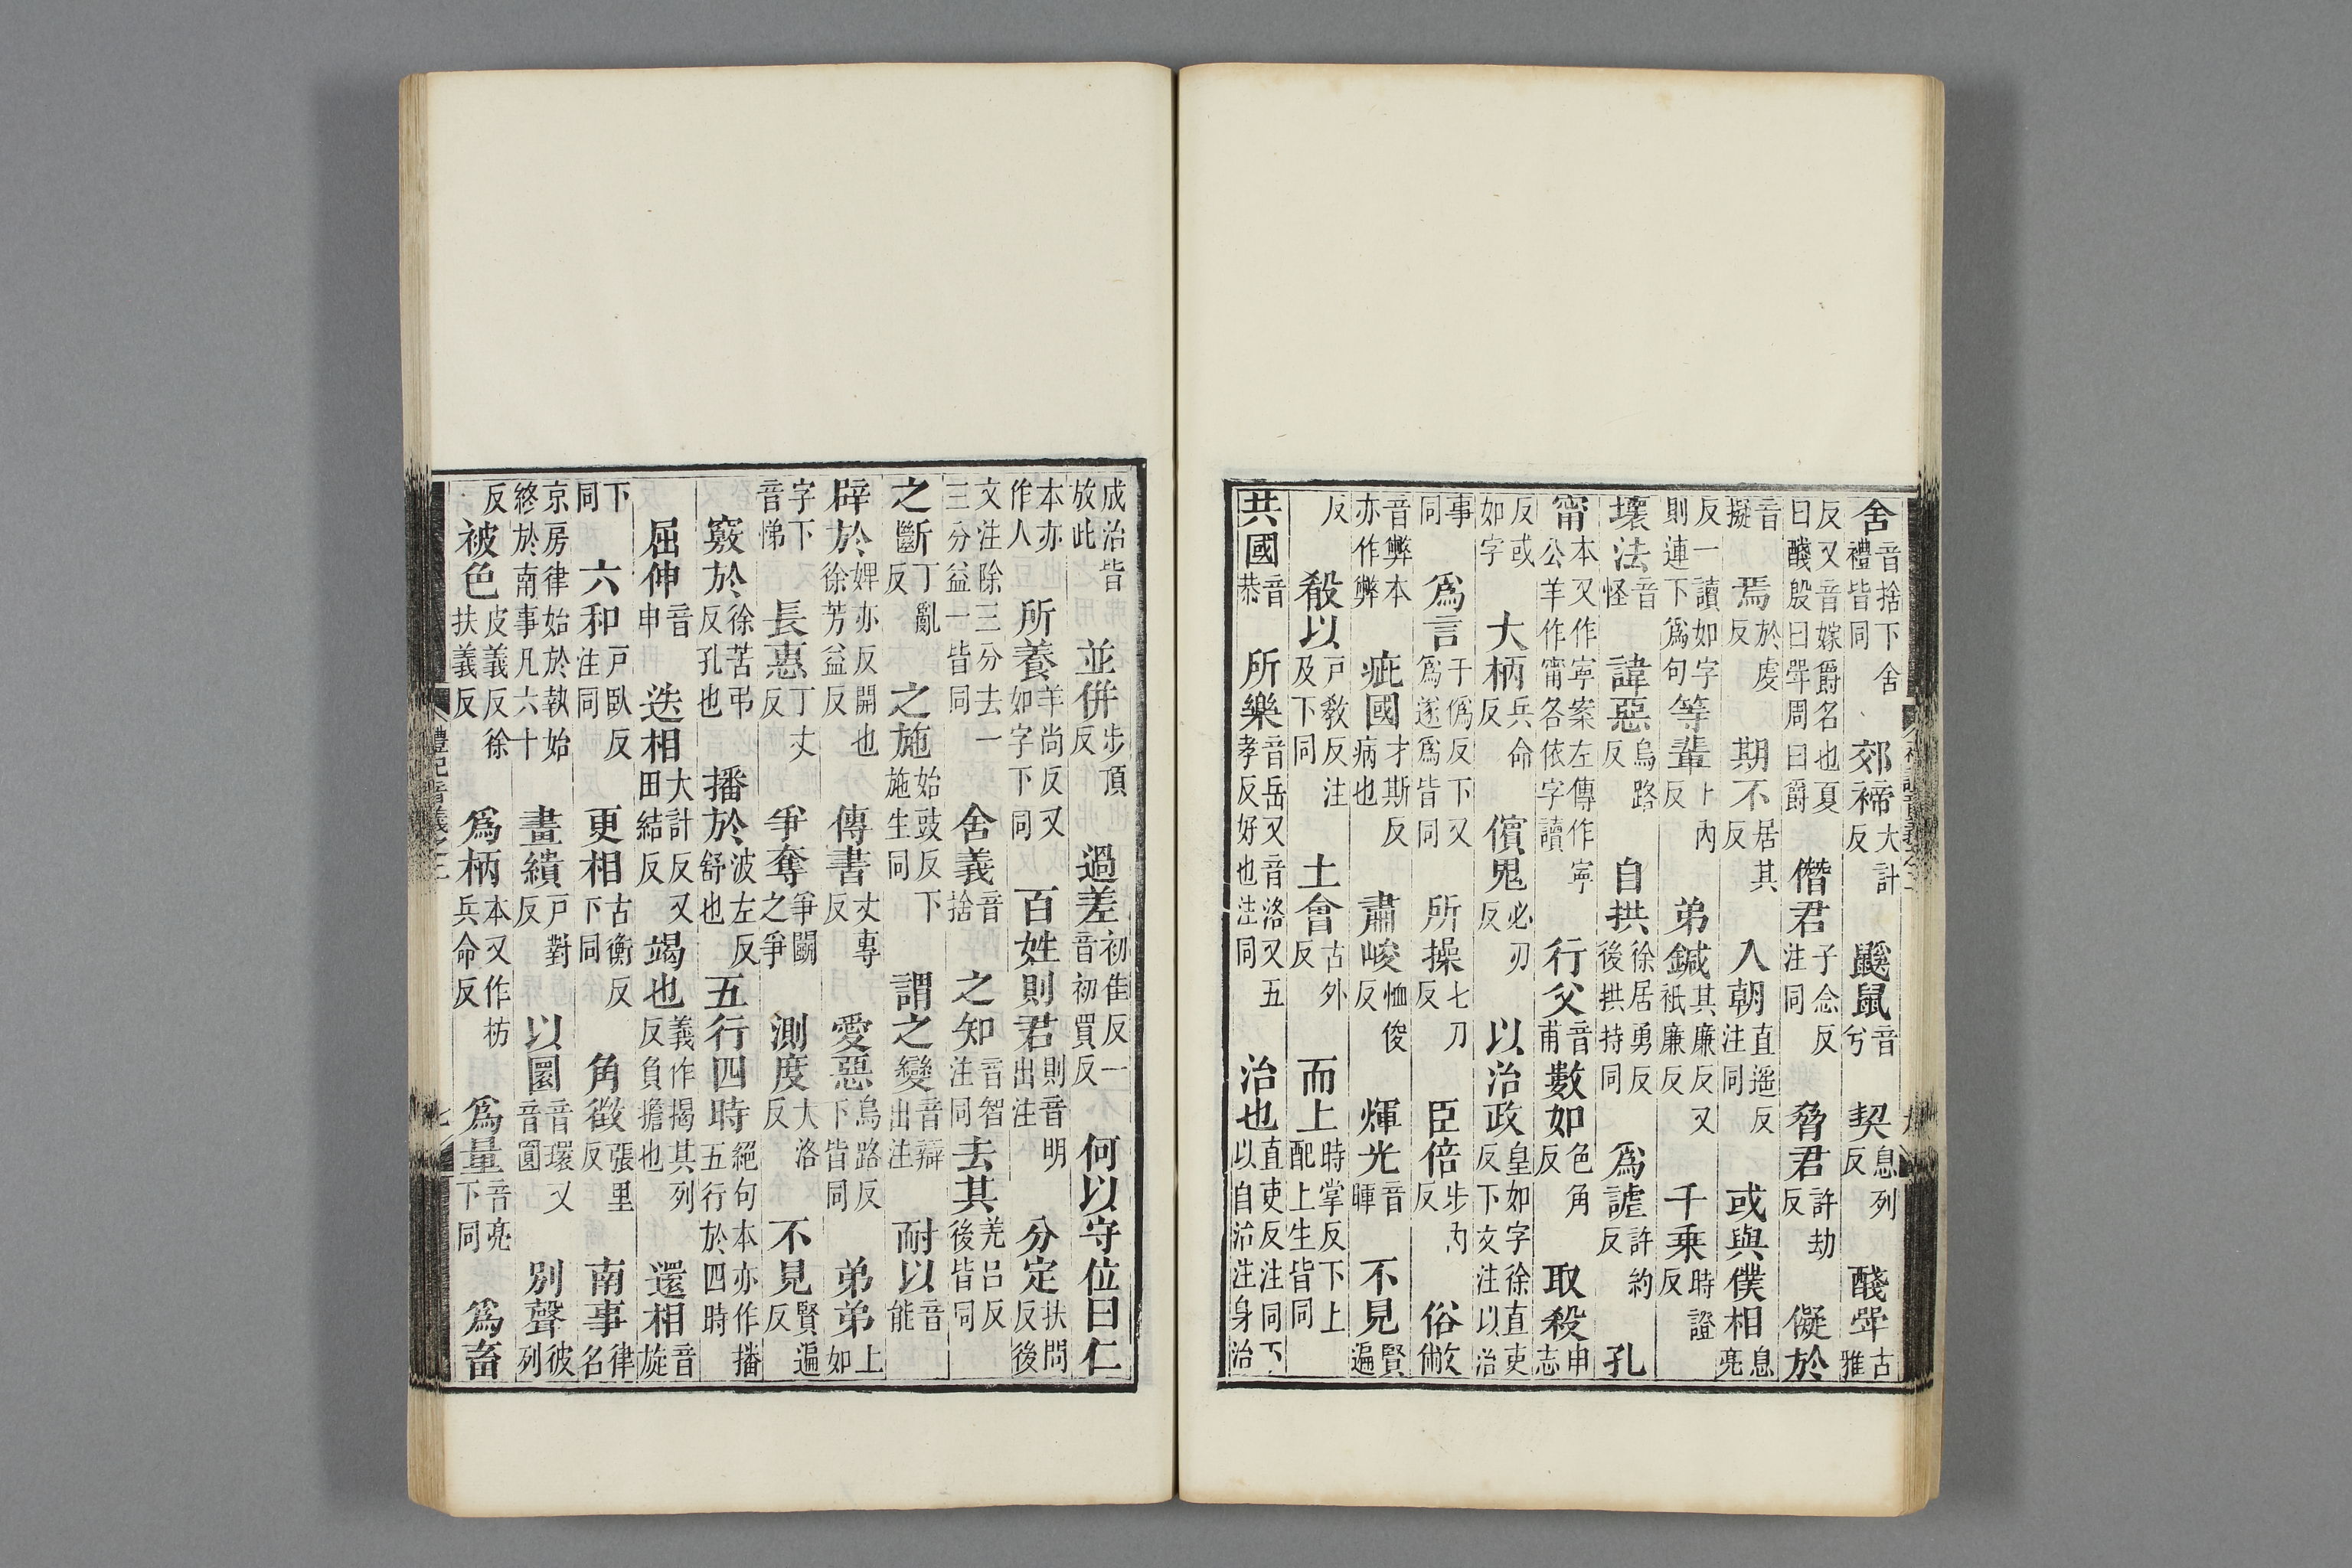 舍音捨下舍禮皆同郊禘大計反鼷鼠音兮契息列反醆斝古雅
反又音嫁爵名也夏曰醆殷曰斝周曰爵僭君子念反注同脅君許劫反儗於
音擬焉於虔反期不居其反入朝直遥反注同或與僕相息亮
反一讀如字則連下爲句等輩卜內反弟鍼其廉反又祇廉反千乗時證反
壞法音怪諱惡烏路反自拱徐居勇反後拱持同爲謔許約反孔
甯本又作寧案左傳作寧公羊作甯各依字讀行父音甫數如色角反取殺申志
反或如字大柄兵命反儐鬼必刃反以治政皇如字徐直吏反下文注以治
事同爲言于僞反下又爲遂爲皆同所操七刀反臣倍步內反俗敝
音弊本亦作弊疵國才斯反病也肅峻恤俊反煇光音暉不見賢遍
反殽以戶敎反注及下同土會古外反而上時掌反下上配上生皆同
共國音恭所樂音岳又音洛又五孝反好也注同治也直吏反注同下以自治注身治
成治皆放此並併步頂反過差初隹反一音初買反何以守位曰仁
本亦作人所養羊尚反又如字下同百姓則君則音明出注分定扶問反後
文注除三分去一三分益一皆同舍義音捨之知音智注同去其羌呂反後皆同
之斷丁亂反之施始豉反下施生同謂之變音辯出注耐以音能
辟於婢亦反開也徐芳益反傳書丈專反愛惡烏路反下皆同弟弟上如
字下音悌長惠丁丈反爭奪爭鬬之爭測度大洛反不見賢遍反
竅於徐苦弔反孔也播於波左反舒也五行四時絕句本亦作播五行於四時
屈伸音申迭相大計反又田結反竭也義作揭其列反負擔也還相音旋
下同六和戶臥反注同更相古衡反下同角徵張里反南事律名
京房律始於執始終於南事凡六十畫繢戶對反以圜音環又音圓別聲彼列
反被色皮義反徐扶義反爲柄本又作枋兵命反爲量音亮下同爲畜
禮記音義之二
七